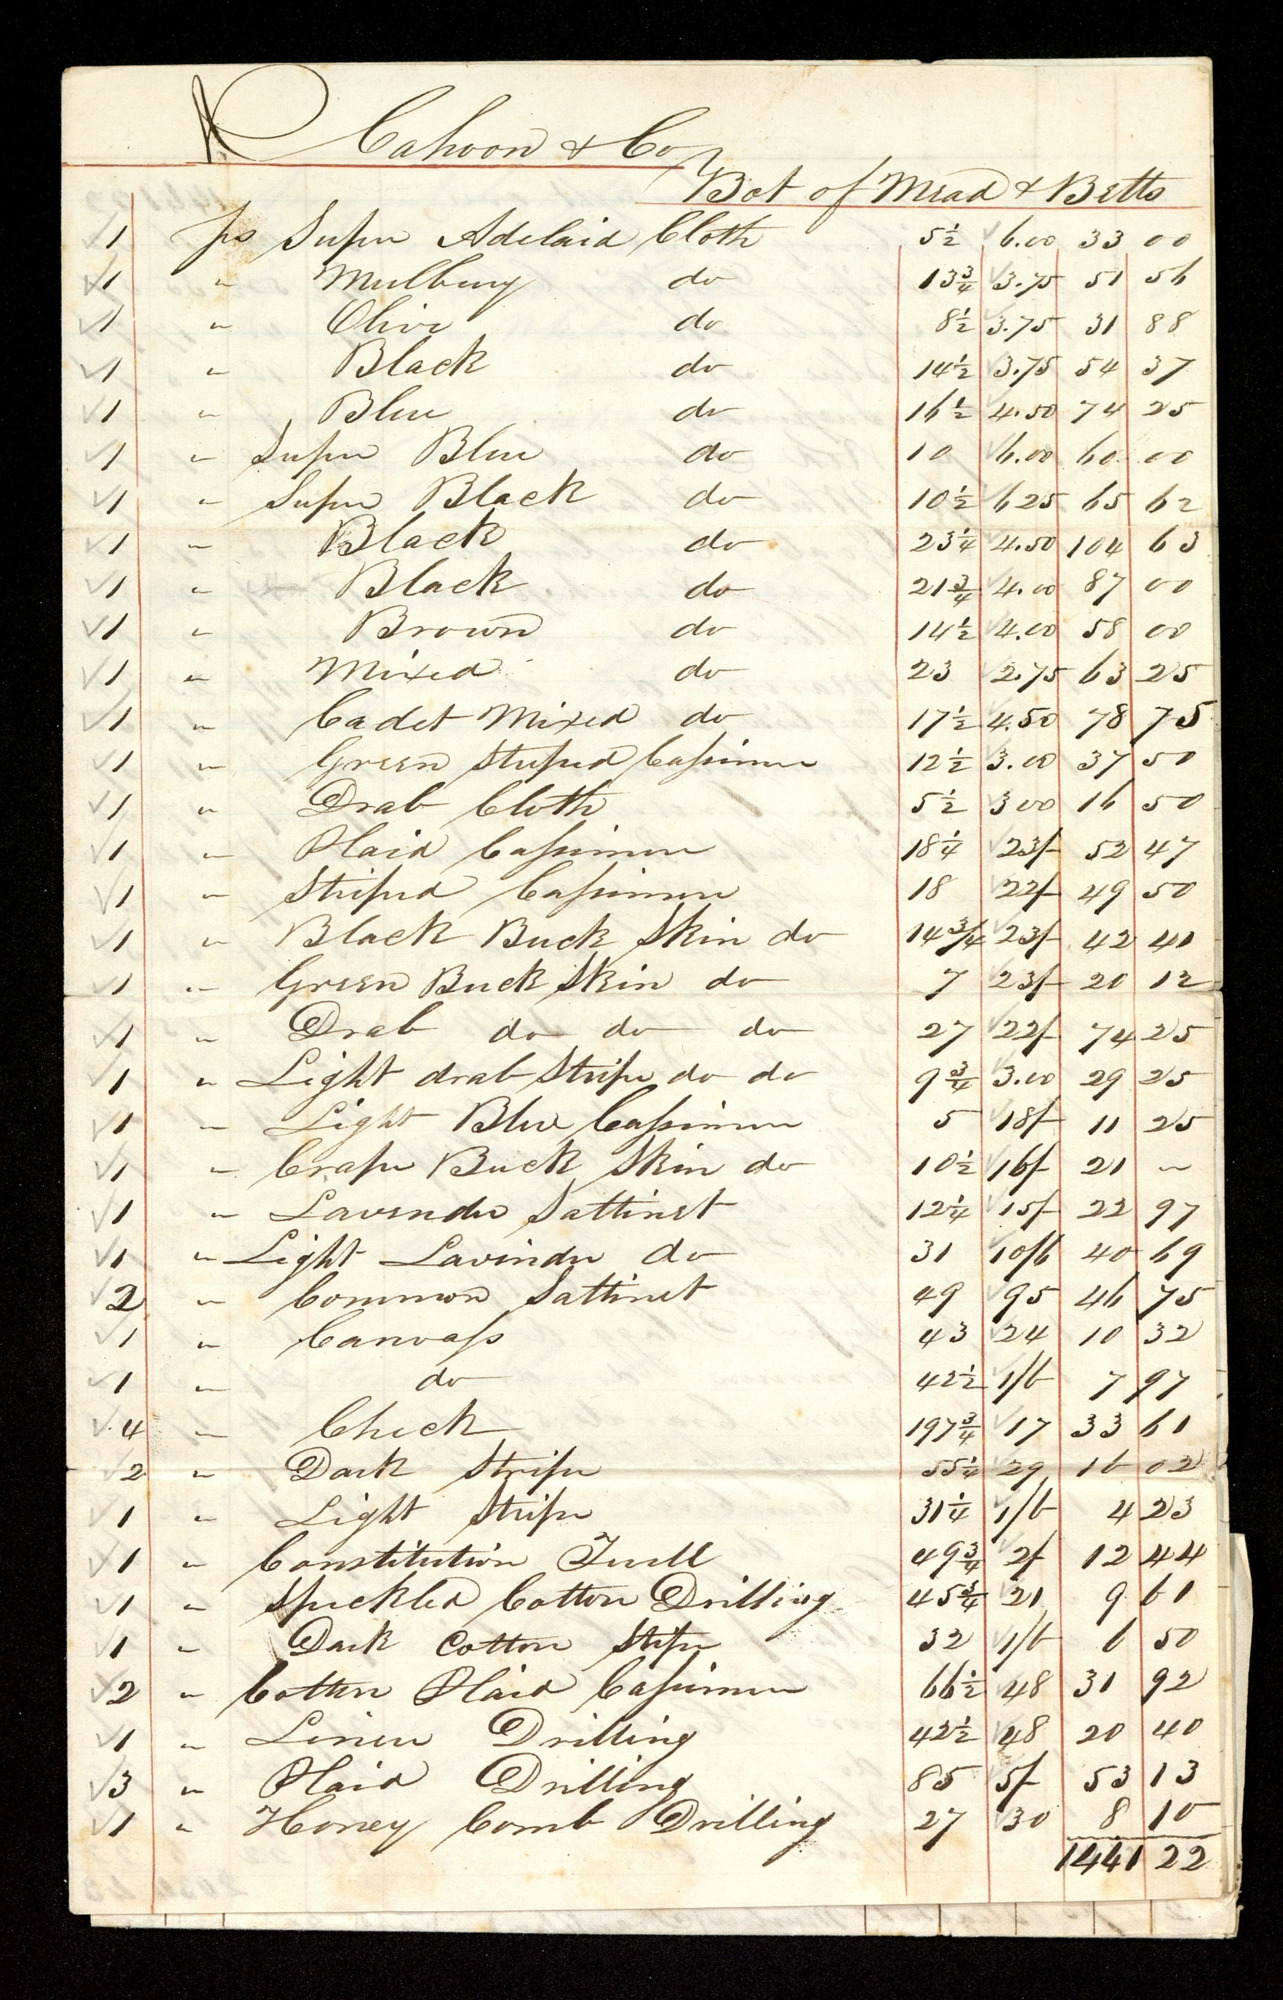 Cahoon & Co
Bot of Mead & Betts
1 ps Super Adelaid Cloth 5½ 6.00 33 00
1 " Mulbury do 13¾ 3.75 51 56
1 " Olive do 8½ 3.75 31 88
1 " Black do 14½ 3.75 54 37
1 " Blue do 16½ 4.50 74 25
1 " Super Blue do 10 6.00 60 00
1 " Super Black do 10½ 625 65 62
1 " Black do 23¼ 4.50 104 63
1 " Black do 21¾ 4.00 87 00
1 " Brown do 14½ 4.00 58 00
1 " Mixed do 23 2.75 63 25
1 " Cadet Mixed do 17½ 4.50 78 75
1 " Green Striped Cassimere 12½ 3.00 37 50
1 " Drab Cloth 5½ 3 00 16 50
1 " Plaid Cassimere 18¼ 23/- 52 47
1 " Striped Cassimere 18 22/- 49 50
1 " Black Buck Skin do 14¾ 23/- 42 41
1 " Green Buck Skin do 7 23/- 20 12
1 " Drab do do do 27 22/- 74 25
1 " Light drab Stripe do do 9¾ 3.00 29 25
1 " Light Blue Cassimere 5 18/- 11 25
1 " Crape Buck Skin do 10½ 16/- 21 "
1 " Lavender Sattinet 12¼ 15/- 22 97
1 " Light Lavinder do 31 10/6 40 69
2 " Common Sattinet 49 95 46 75
1 " Canvass 43 24 10 32
1 " do 42½ 1/6 7 97
4 " Check 197¾ 17 33 61
2 " Dark Stripe 55¼ 29 16 02
1 " Light Stripe 31¼ 1/6 4 23
1 " Constitution Twill 49¾ 2/- 12 44
1 " Speckled Cotton Drilling 45¾ 21 9 61
1 " Dark Cotton Stripe 32 1/6 6 50
2 " Cotton Plaid Cassimere 66½ 48 31 92
1 " Linen Drilling 42½ 48 20 40
3 " Plaid Drilling 85 5/- 53 13
1 " Honey Comb Drilling 27 30 8 10
1441 22